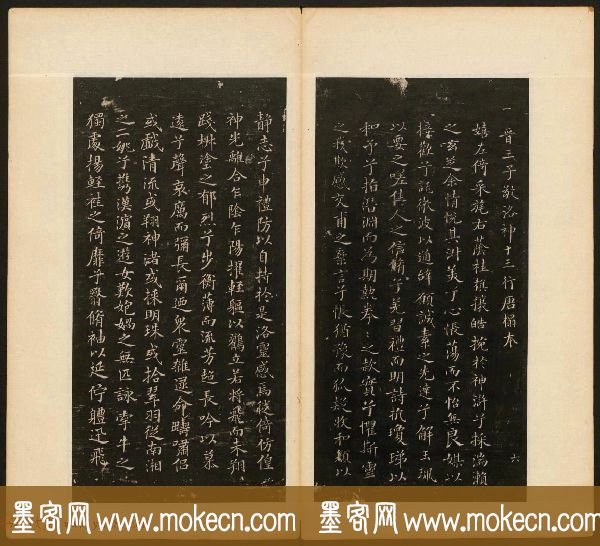 晉王子敬洛神十三行唐搨本
六
嬉左倚采旄右蔭桂旗攘皓捥於神滸兮採湍瀨
之玄芝余情悅其淑美兮心振蕩而不怡無良媒以
接歡兮託微波以通辭願誠素之先達兮解玉珮
以要之嗟佳人之信脩兮羌習禮而明詩抗瓊珶以
和予兮指潛淵而為期執拳之款實兮懼斯靈
之我欺感交甫之棄言兮悵猶豫而狐疑收和顏以
靜志兮申禮防以自持於是洛靈感焉徙倚仿偟
神光離合乍陰乍陽擢輕軀以鶴立若將飛而未翔
踐椒塗之郁烈兮步衡薄而流芳超長吟以慕
遠兮聲哀厲而彌長爾迺眾靈雜遝命疇嘯侶
或戲清流或翔神渚或採明珠或拾翠羽從南湘
之二姚兮攜漢濱之遊女歎匏媧之無匹詠牽牛之
獨處揚輕袿之倚靡兮翳脩袖以延佇軆迅飛
墨客网 www.mokecn.com 墨客网 www.mokecn.com